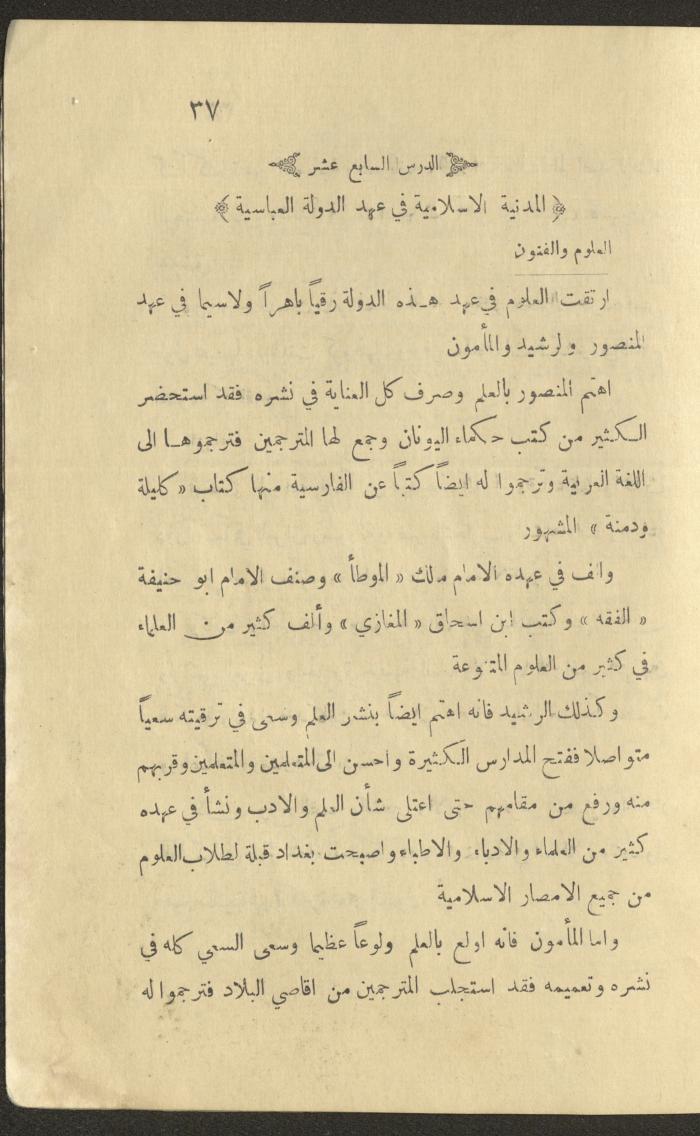 ٣٧
الدرس السابع عشر
﴿ المدنية الاسلامية في عهد الدولة العباسية ﴾
العلوم والفنون
ارتقت العلوم في عهد هـذه الدولة رقياً باهراً ولاسيما في عهد
المنصور والرشيد والمأمون
اهتم المنصور بالعلم وصرف كل العناية في نشره فقد استحضر
الكثير من كتب حكماء اليونان وجمع لها المترجمين فترجموها الى
اللغة العربية وترجموا له ايضاً كتباً عن الفارسية منها كتاب « كليلة
ودمنة » المشهور
والف في عهده الامام مالك « الموطأ » وصنف الامام ابو حنيفة
« الفقه » وكتب ابن اسحاق « المغازي » وألف كثير من العلماء
في كثير من العلوم المتنوعة
وكذلك الرشيد فانه اهتم ايضاً بنشر العلم وسعى في ترقيته سعياً
متواصلا ففتح المدارس الكثيرة واحسن الى المتعلمين والمتعلمين وقربهم
منه ورفع من مقامهم حتى اعتلى شأن العلم والادب ونشأ في عهده
كثير من العلماء والادباء والاطباء واصبحت بغداد قبلة لطلاب العلوم
من جميع الامصار الاسلامية
واما المأمون فانه اولع بالعلم ولوعاً عظيما وسعى السعي كله في
نشره وتعميمه فقد استجلب المترجمين من اقاصي البلاد فترجموا له